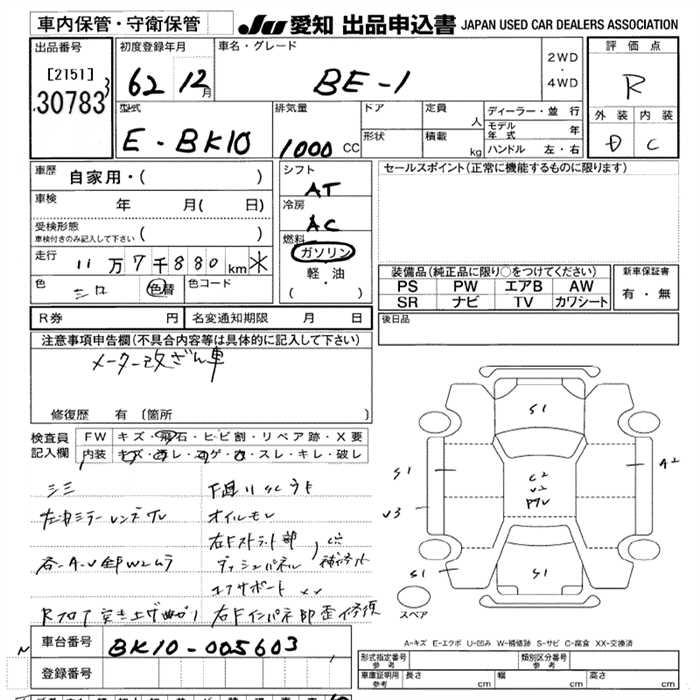 車内保管・守衛保管
JU 愛知 出品申込書 JAPAN USED CAR DEALERS ASSOCIATION
出品番号
[2151]
30783
初度登録年月
62 12月
車名・グレード
BE-1
2WD
・
4WD
評価点
R
外装 内装
D C
型式
E-BK10
排気量
1000 CC
ドア
形状
定員 人
積載 kg
ディーラー・並行
モデル年式 年
ハンドル 左・右
車歴
自家用・( )
車検
年 月( 日)
受検形態
車検付きのみ記入して下さい ( )
走行
11万7千880km ※
色
シロ
色替
色コード
シフト
AT
冷房
AC
燃料
ガソリン
軽・油
( )
セールスポイント(正常に機能するものに限ります)
装備品(純正品に限り○をつけてください)
PS PW エアB AW
SR ナビ TV カワシート
新車保証書
有・無
R券 円
名変通知期限 月 日
後日品
注意事項申告欄(不具合内容等は具体的に記入して下さい)
メーター改ざん車
修復歴 有 〔箇所 〕
検査員
記入欄
FW キズ・飛石・ヒビ割・リペア跡・X要
内装 キズ・汚レ・コゲ・穴・スレ・キレ・破レ
シミ
左右ミラーレンズワレ
各A・U全部W2ムラ
下廻りサビ
オイルモレ
右Fストラット部
ダッシュパネル
コアサポート XX
右Fインパネ部歪修復
S1
C2
S1
S1
A2
S1
スペア
A-キズ E-エクボ U-凹み W-補修跡 S-サビ C-腐食 XX-交換済
車台番号
BK10-005603
登録番号
形式指定番号
参考
類別区分番号
参考
車庫証明用
参考
長さ cm
幅 cm
高さ cm